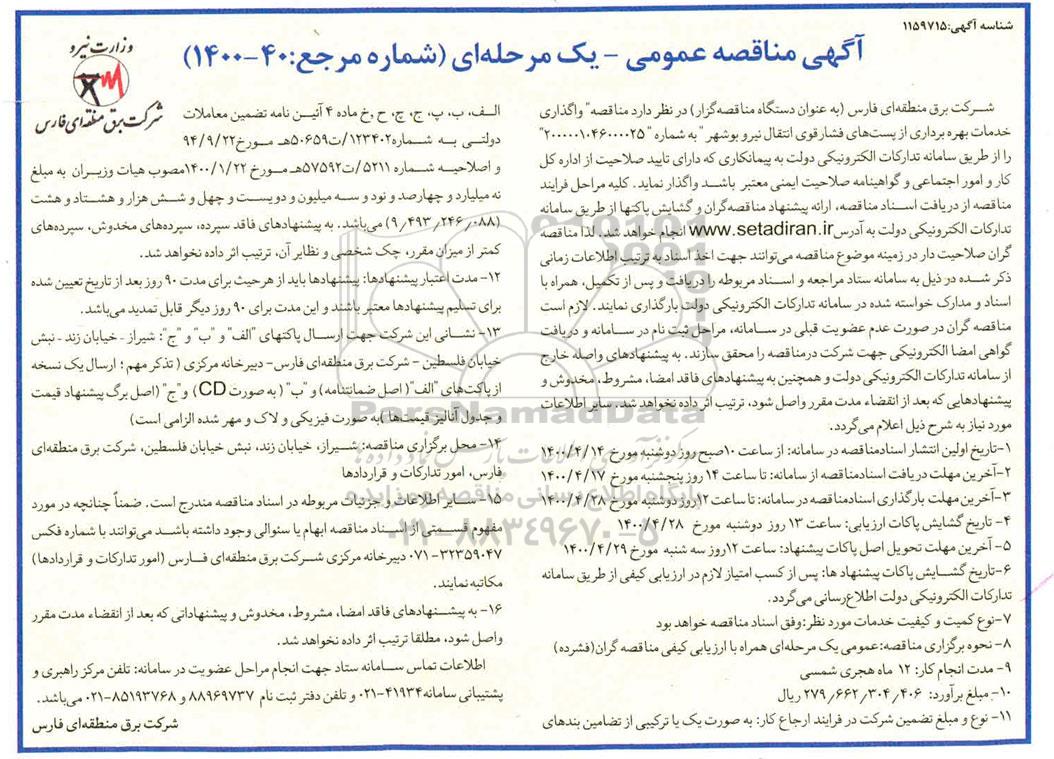 شناسه آگهی:۱۱۵۹۷۱۵
آگهی مناقصه عمومی - یک مرحله‌ای (شماره مرجع:۴۰-۱۴۰۰)
وزارت نیرو
شرکت برق منطقه‌ای فارس
شرکت برق منطقه‌ای فارس (به عنوان دستگاه مناقصه‌گزار) در نظر دارد مناقصه" واگذاری
خدمات بهره برداری از پست‌های فشارقوی انتقال نیرو بوشهر " به شماره " ۲۰۰۰۰۰۱۰۴۶۰۰۰۰۲۵"
را از طریق سامانه تدارکات الکترونیکی دولت به پیمانکاری که دارای تایید صلاحیت از اداره کل
کار و امور اجتماعی و گواهینامه صلاحیت ایمنی معتبر باشد واگذار نماید. کلیه مراحل فرایند
مناقصه از دریافت اسناد مناقصه، ارائه پیشنهاد مناقصه‌گران و گشایش پاکتها از طریق سامانه
تدارکات الکترونیکی دولت به آدرس www.setadiran.ir انجام خواهد شد. لذا مناقصه
گران صلاحیت دار در زمینه موضوع مناقصه می‌توانند جهت اخذ اسناد به ترتیب اطلاعات زمانی
ذکر شده در ذیل به سامانه ستاد مراجعه و اسناد مربوطه را دریافت و پس از تکمیل، همراه با
اسناد و مدارک خواسته شده در سامانه تدارکات الکترونیکی دولت بارگذاری نمایند. لازم است
مناقصه گران در صورت عدم عضویت قبلی در سامانه، مراحل ثبت نام در سامانه و دریافت
گواهی امضا الکترونیکی جهت شرکت درمناقصه را محقق سازند. به پیشنهادهای واصله خارج
از سامانه تدارکات الکترونیکی دولت و همچنین به پیشنهادهای فاقد امضا، مشروط، مخدوش و
پیشنهادهایی که بعد از انقضاء مدت مقرر واصل شود، ترتیب اثر داده نخواهد شد. سایر اطلاعات
مورد نیاز به شرح ذیل اعلام می‌گردد.
۱-تاریخ اولین انتشار اسنادمناقصه در سامانه: از ساعت ۱۰صبح روز دوشنبه مورخ ۱۴۰۰/۴/۱۴
۲-آخرین مهلت دریافت اسنادمناقصه از سامانه: تا ساعت ۱۴ روز پنجشنبه مورخ ۱۴۰۰/۴/۱۷
۳-آخرین مهلت بارگذاری اسنادمناقصه در سامانه: تا ساعت ۱۲روز دوشنبه مورخ ۱۴۰۰/۴/۲۸
۴- تاریخ گشایش پاکات ارزیابی: ساعت ۱۳ روز دوشنبه مورخ ۱۴۰۰/۴/۲۸
۵- آخرین مهلت تحویل اصل پاکات پیشنهاد: ساعت ۱۲روز سه شنبه مورخ ۱۴۰۰/۴/۲۹
۶-تاریخ گشایش پاکات پیشنهاد ها: پس از کسب امتیاز لازم در ارزیابی کیفی از طریق سامانه
تدارکات الکترونیکی دولت اطلاع‌رسانی می‌گردد.
۷-نوع کمیت و کیفیت خدمات مورد نظر:وفق اسناد مناقصه خواهد بود
۸- نحوه برگزاری مناقصه:عمومی یک مرحله‌ای همراه با ارزیابی کیفی مناقصه گران(فشرده)
۹- مدت انجام کار: ۱۲ ماه هجری شمسی
۱۰-مبلغ برآورد: ۲۷۹٫۶۶۲٫۳۰۴٫۴۰۶ ریال
۱۱- نوع و مبلغ تضمین شرکت در فرایند ارجاع کار: به صورت یک یا ترکیبی از تضامین بندهای
الف، ب، پ، ج، چ، ح ،خ ماده ۴ آئین نامه تضمین معاملات
دولتی به شماره۱۲۳۴۰۲/ت۵۰۶۵۹هـ مورخ۹۴/۹/۲۲
و اصلاحیه شماره ۵۲۱۱/ت۵۷۵۹۲هـ مورخ ۱۴۰۰/۱/۲۲مصوب هیات وزیران به مبلغ
نه میلیارد و چهارصد و نود و سه میلیون و دویست و چهل و شش هزار و هشتاد و هشت
(۹٫۴۹۳٫۲۴۶٫۰۸۸) می‌باشد. به پیشنهادهای فاقد سپرده، سپرده‌های مخدوش، سپرده‌های
کمتر از میزان مقرر، چک شخصی و نظایر آن، ترتیب اثر داده نخواهد شد.
۱۲-مدت اعتبار پیشنهادها: پیشنهادها باید از هرحیث برای مدت ۹۰ روز بعد از تاریخ تعیین شده
برای تسلیم پیشنهادها معتبر باشند و این مدت برای ۹۰ روز دیگر قابل تمدید می‌باشد.
۱۳- نشانی این شرکت جهت ارسال پاکتهای "الف" و "ب" و "ج": شیراز - خیابان زند - نبش
خیابان فلسطین - شرکت برق منطقه‌ای فارس- دبیرخانه مرکزی ( تذکر مهم ؛ ارسال یک نسخه
از پاکت‌های "الف" ( اصل ضمانتنامه) و "ب" ( به صورت CD) و "ج" (اصل برگ پیشنهاد قیمت
و جدول آنالیز قیمت‌ها )به صورت فیزیکی و لاک و مهر شده الزامی است)
۱۴- محل برگزاری مناقصه: شیراز، خیابان زند، نبش خیابان فلسطین، شرکت برق منطقه‌ای
فارس، امور تدارکات و قراردادها
۱۵- سایر اطلاعات و جزئیات مربوطه در اسناد مناقصه مندرج است. ضمناً چنانچه در مورد
مفهوم قسمتی از اسناد مناقصه ابهام یا سئوالی وجود داشته باشد می‌توانند با شماره فکس
۳۲۳۵۹۰۴۷-۰۷۱ دبیرخانه مرکزی شرکت برق منطقه‌ای فارس (امور تدارکات و قراردادها)
مکاتبه نمایند.
۱۶- به پیشنهادهای فاقد امضا، مشروط، مخدوش و پیشنهاداتی که بعد از انقضاء مدت مقرر
واصل شود، مطلقا ترتیب اثر داده نخواهد شد.
اطلاعات تماس سامانه ستاد جهت انجام مراحل عضویت در سامانه: تلفن مرکز راهبری و
پشتیبانی سامانه۴۱۹۳۴-۰۲۱ و تلفن دفتر ثبت نام ۸۸۹۶۹۷۳۷ و ۸۵۱۹۳۷۶۸-۰۲۱ می‌باشد.
شرکت برق منطقه‌ای فارس
ParsNamadData
پایگاه اطلاع رسانی مناقصه و مزایده
۰۲۱-۸۸۳۴۹۶۷۰-۵